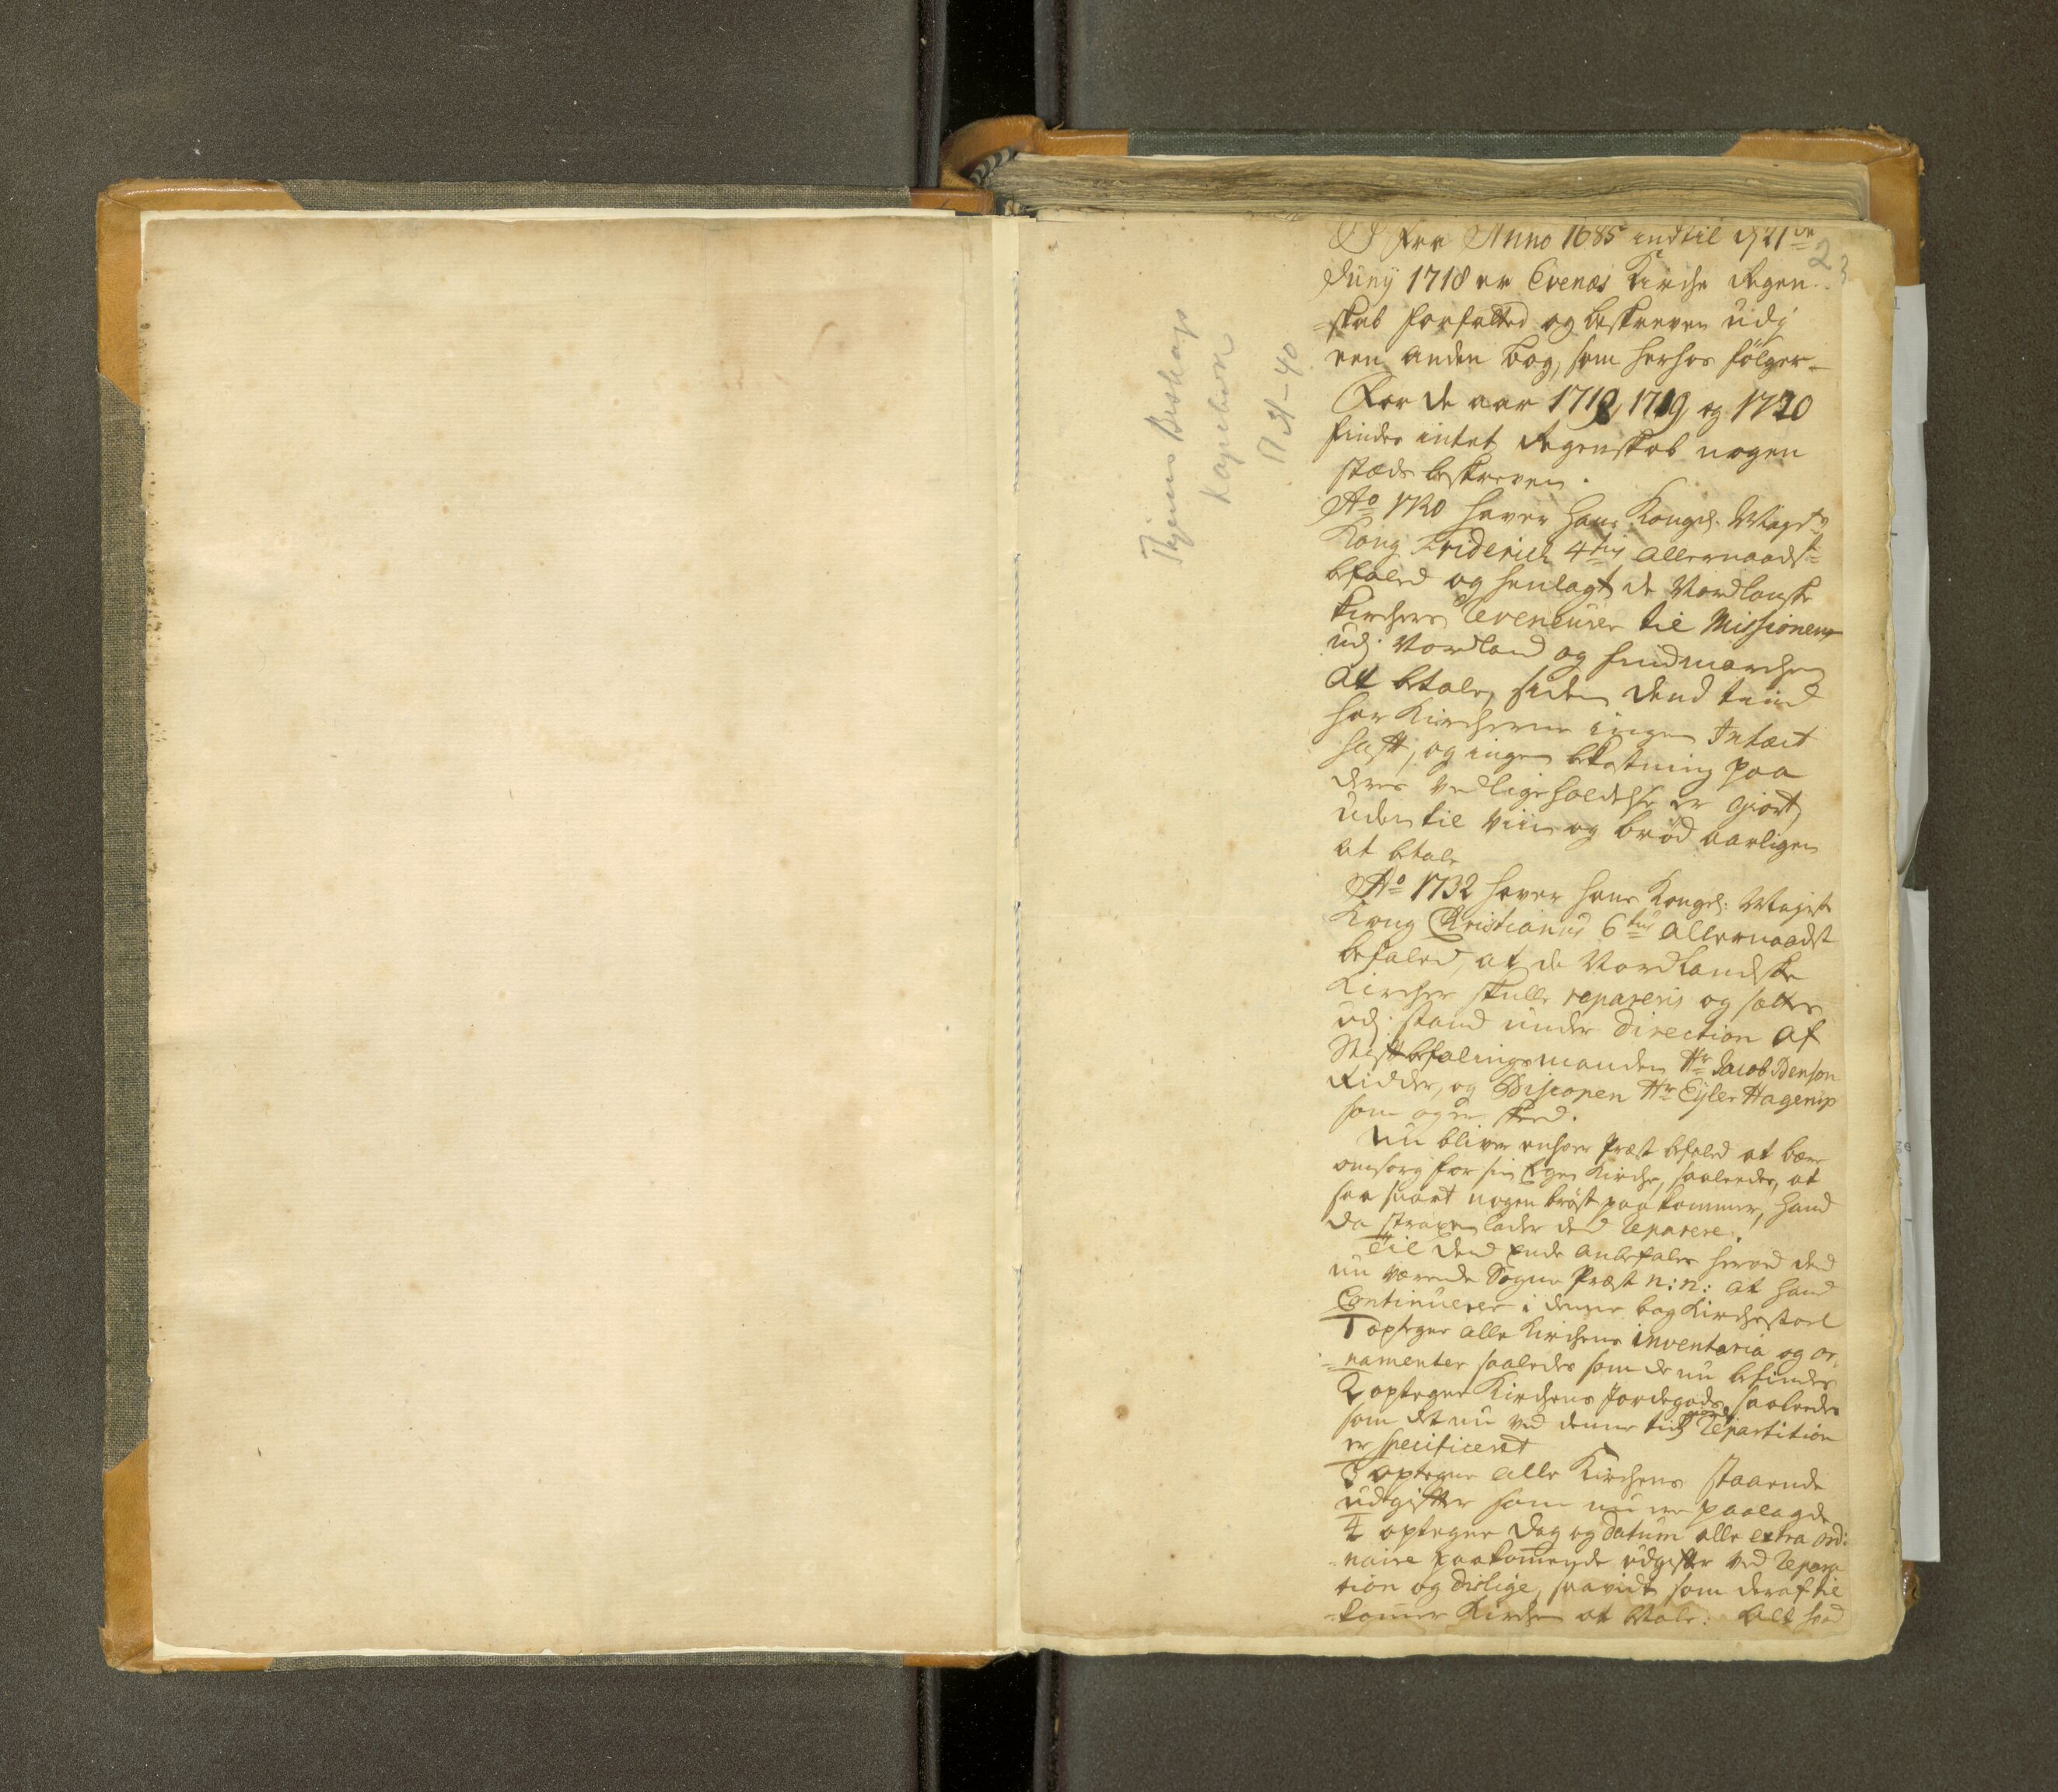 Fra Anno 1685 indtil d 21de
Junij 1718 er Evenæs Kirche Regen-
=skab forfatted og beskreven udj
een anden bog, som herhos fölger.
For de aar 1718, 1719 og 1720
findes intet Regenskab nogen
stæds beskreven.
Ao 1720 haver Hans Kongel. Mayst
Kong Friderich 4tus allernaadst
befaled og henlagt de Nordlanske
Kirchers Revenüer til Missionen
udj Nordland og findmarchen
at betale, siden dend tiid
har Kircherne ingen Intægt
hafft, og ingen bekostning paa
deres vedligeholdelse er giort,
uden til Viin og bröd aarligen
at betale
Ao 1732 haver hans Kongel: Mayst
Kong Christianus 6tus allernaadst
befaled, at de Nordlandske
Kircher skulle repareris og sættes
udj stand under direction af
Stiftbefalingsmanden Hr Jacob Benson
Ridder, og Biscopen Hr Eyler Hagerup
som og er skeed.
Nu bliver enhver Præst befaled at bære
omsorg for sin Egen Kirche, saaledes, at
saa snart nogen bröst paakommer, hand
da straxen lader det reparere.
Til dend Ende anbefales herved den
nu værende Sogne Præst n:n: at hand
Continuerer i denne bog Kirchestoel
1 optegne alle Kirchens inventaria og or,
=namenter saaledes som de nu befindes
2 optegne Kirchens Jordegods, saaledes
som det nu ved denne tids repartition
er specificeret
3 optegne alle Kirchens staaende
udgiffter som nu ere paalagde
4 optegne dag og datum alle extra ord:
=naire paakommende udgiffter ved repara
tion og dislige, saavidt som deraf til
=kommer Kirchen at betale: alt hvad
2
3
Thjems Biskops
kopibok
17 31-40